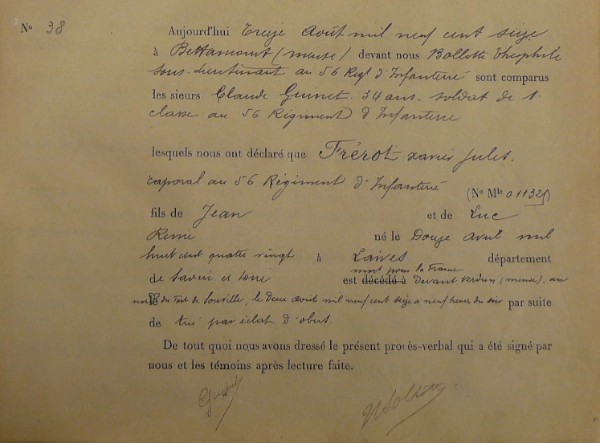 No 38
Aujourd'hui Treize Août mil neuf cent seize
à (meuse) devant nous Théophile
sous-lieutenant au 56 Regt d'Infanterie sont comparus
les sieurs Claude 34 ans soldat de 1e
classe au 56 Régiment d'Infanterie
lesquels nous ont déclaré que Frérot xavier jules.
caporal au 56 Régiment d'Infanterie
(No Mle 011325)
fils de Jean et de Luc
Reine né le Douze avril mil
huit cent quatre vingt à Laives département
mort pour la France
de Saône et Loire est décédé à Devant Verdun (meuse), au
du Fort de Souville, le Deux août mil neuf cent seize à neuf heures du soir par suite
de tué par éclat d'obus.
De tout quoi nous avons dressé le présent procès-verbal qui a été signé par
nous et les témoins après lecture faite.